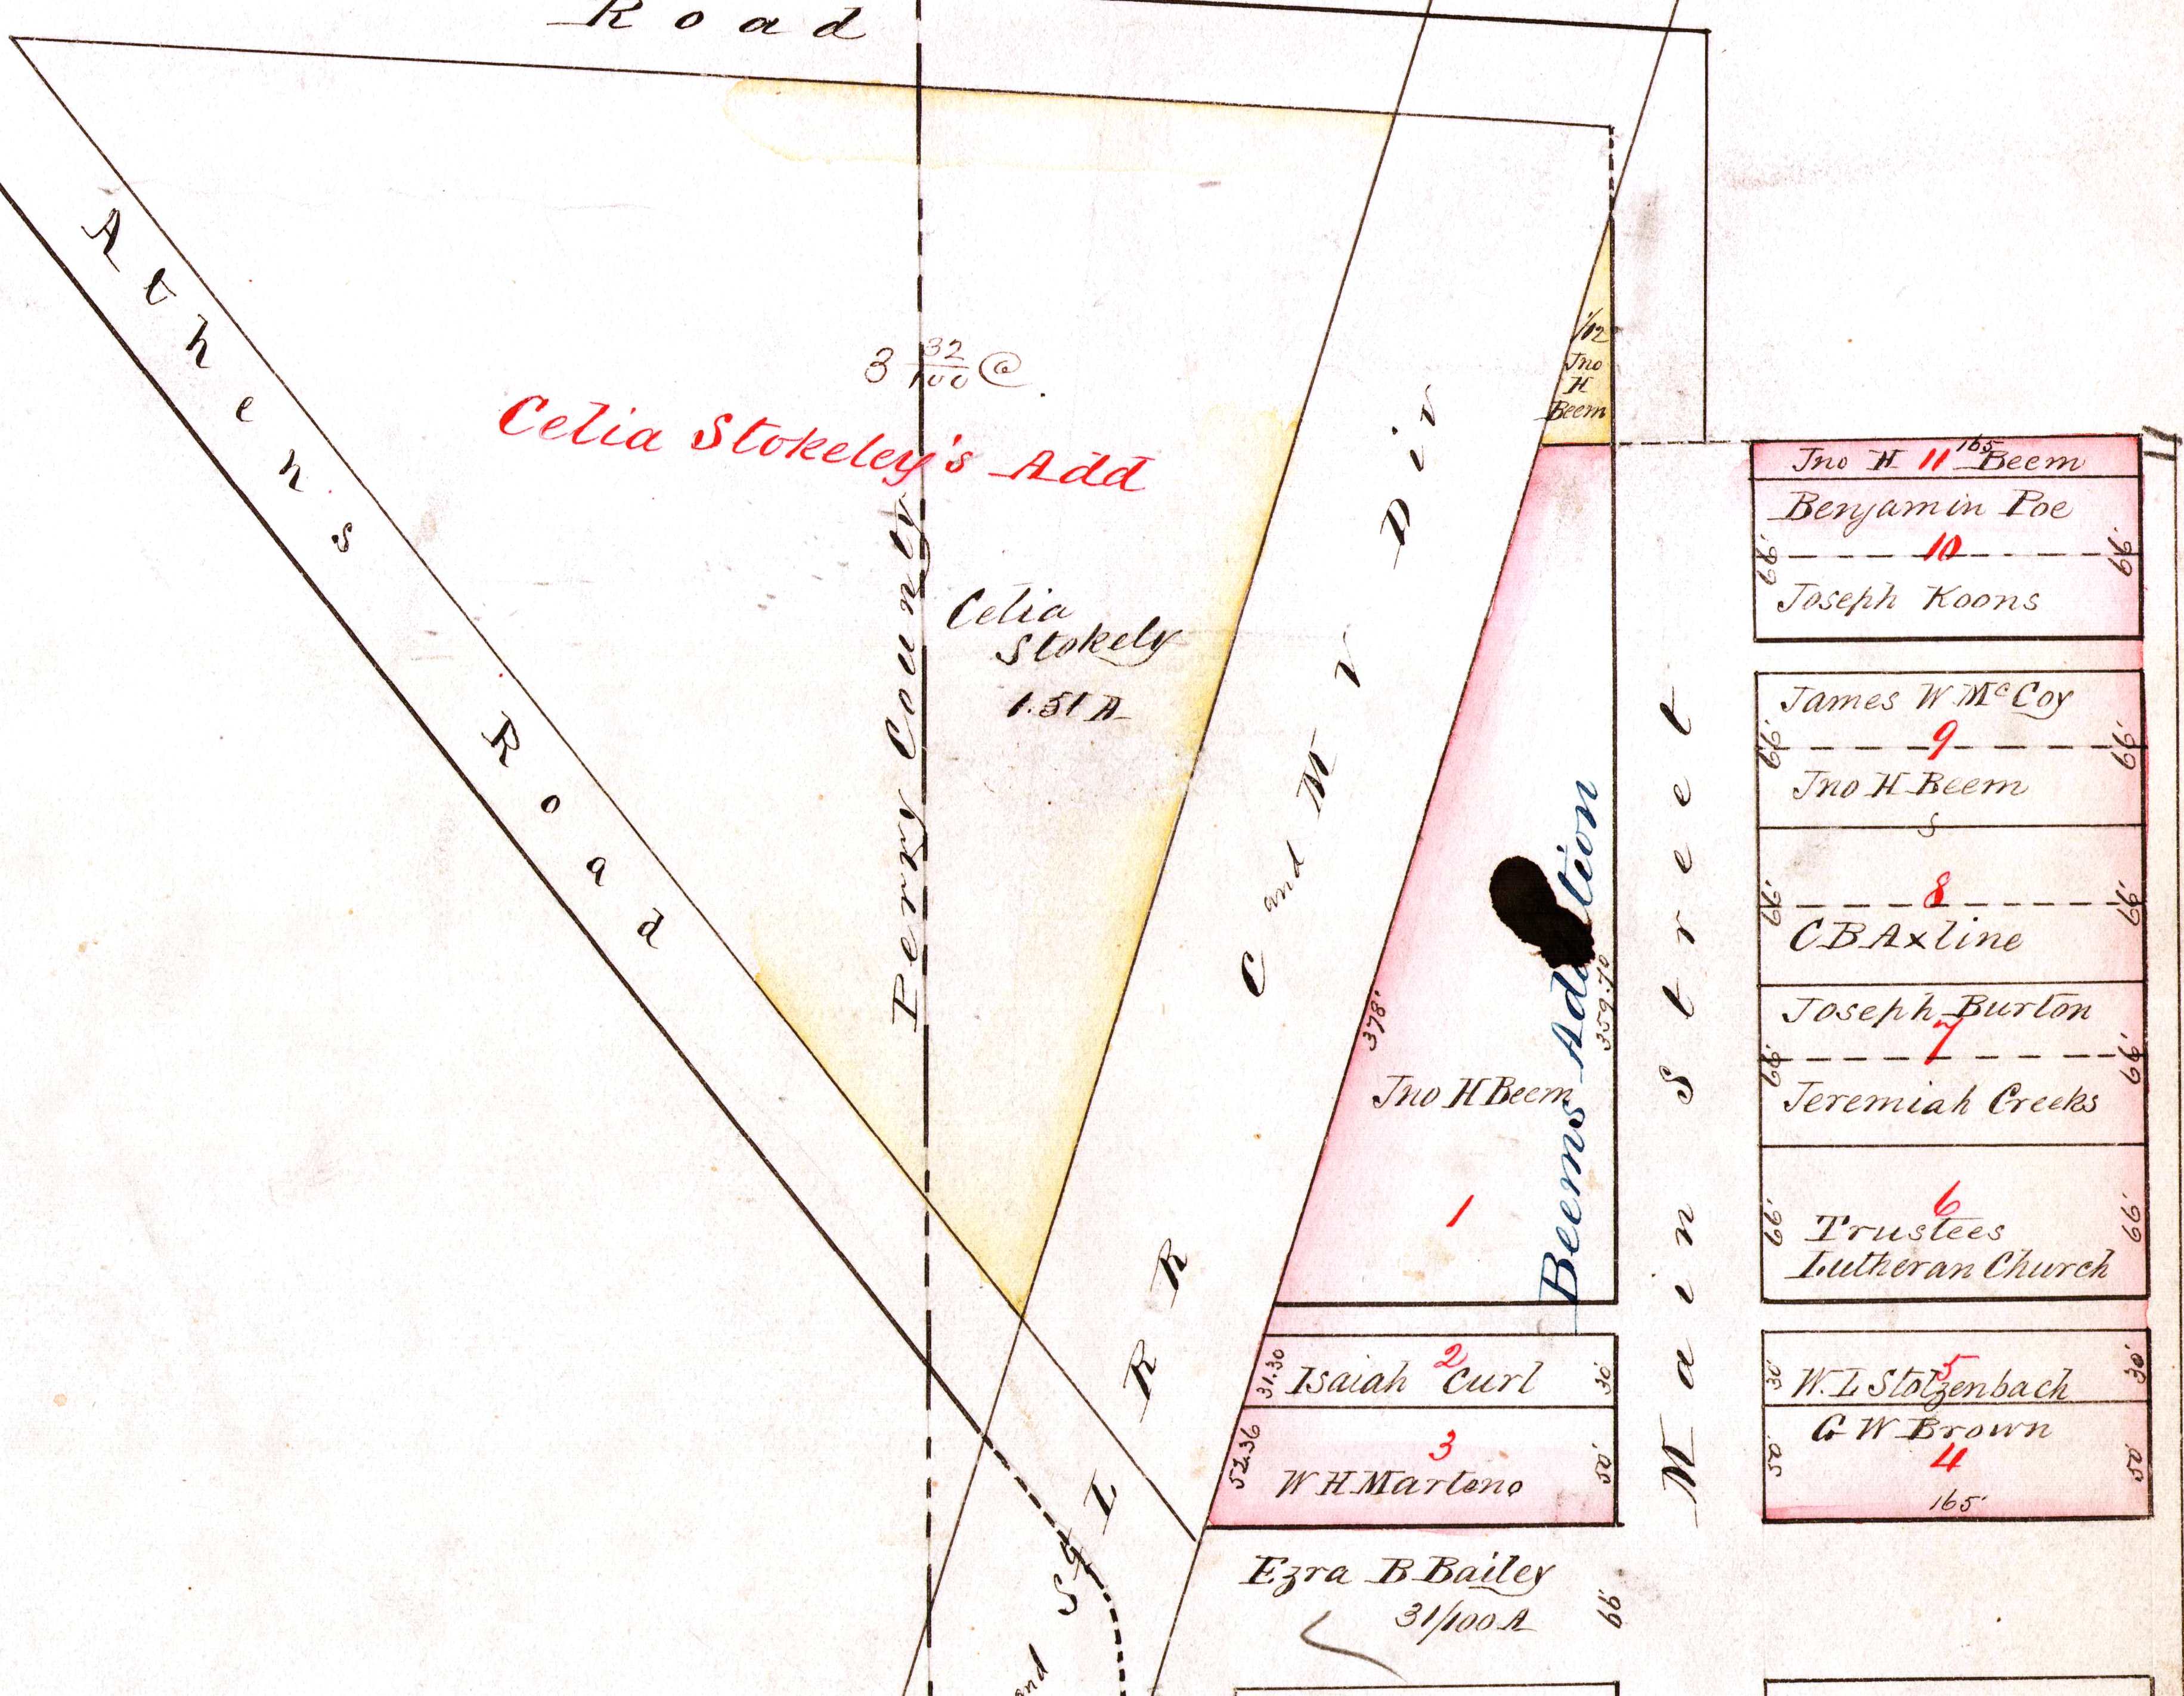 Road
Athens Road
3 32/100 @
Celia Stokeley's Add
Perry County
Celia
Stokely
1.51 A
and St L RR C and M V Div
1/12
Jno
H
Beem
378'
Beems Addition
359.70
Jno H Beem
1
31.30
2
Isaiah Curl
30'
52.36
3
W H Martens
50'
Ezra B Bailey
31/100 A
66'
Main Street
165
Jno H 11 Beem
Benjamin Poe
66' 10 66'
Joseph Koons
James W McCoy
66' 9 66'
Jno H Beem
S
66' 8 66'
C B Axline
Joseph Burton
66' 7 66'
Jeremiah Creeks
66' 6 66'
Trustees
Lutheran Church
30' 5 30'
W. L Stolzenbach
G W Brown
50' 4 50'
165'